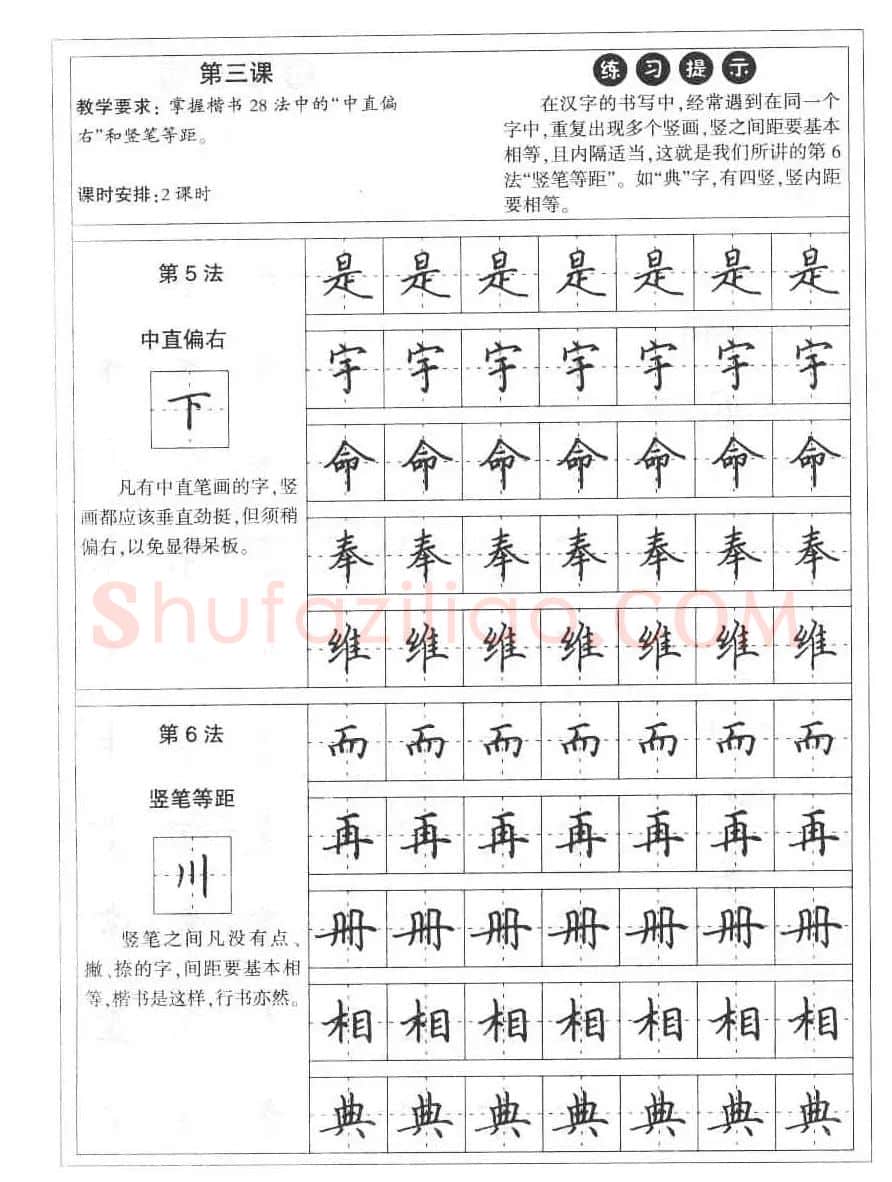 第三课
教学要求：掌握楷书28法中的“中直偏
右”和竖笔等距。
课时安排：2课时
练习提示
在汉字的书写中，经常遇到在同一个
字中，重复出现多个竖画，竖之间距要基本
相等，且内隔适当，这就是我们所讲的第6
法“竖笔等距”。如“典”字，有四竖，竖内距
要相等。
第5法
中直偏右
下
凡有中直笔画的字，竖
画都应该垂直劲挺，但须稍
偏右，以免显得呆板。
是是是是是是是
宇宇宇宇宇宇宇
命命命命命命命
奉奉奉奉奉奉奉
维维维维维维维
Shufaziliao.COM
第6法
竖笔等距
川
竖笔之间凡没有点、
撇、捺的字，间距要基本相
等，楷书是这样，行书亦然。
而而而而而而而
再再再再再再再
册册册册册册册
相相相相相相相
典典典典典典典